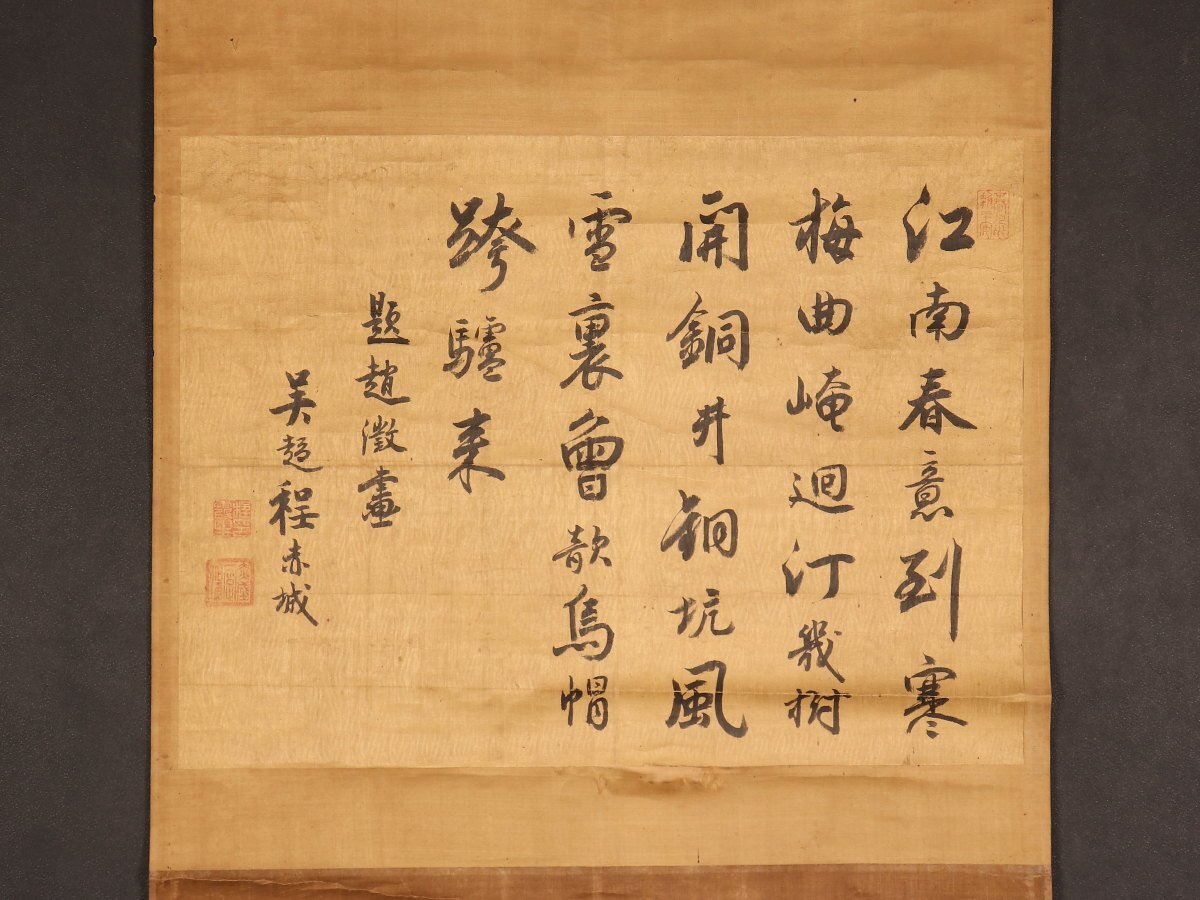 江南春意到寒
梅曲崦迴汀幾樹
開銅井銅坑風
雪裏曾欹烏帽
跨驢来
題趙澂畫
吴趨程赤城